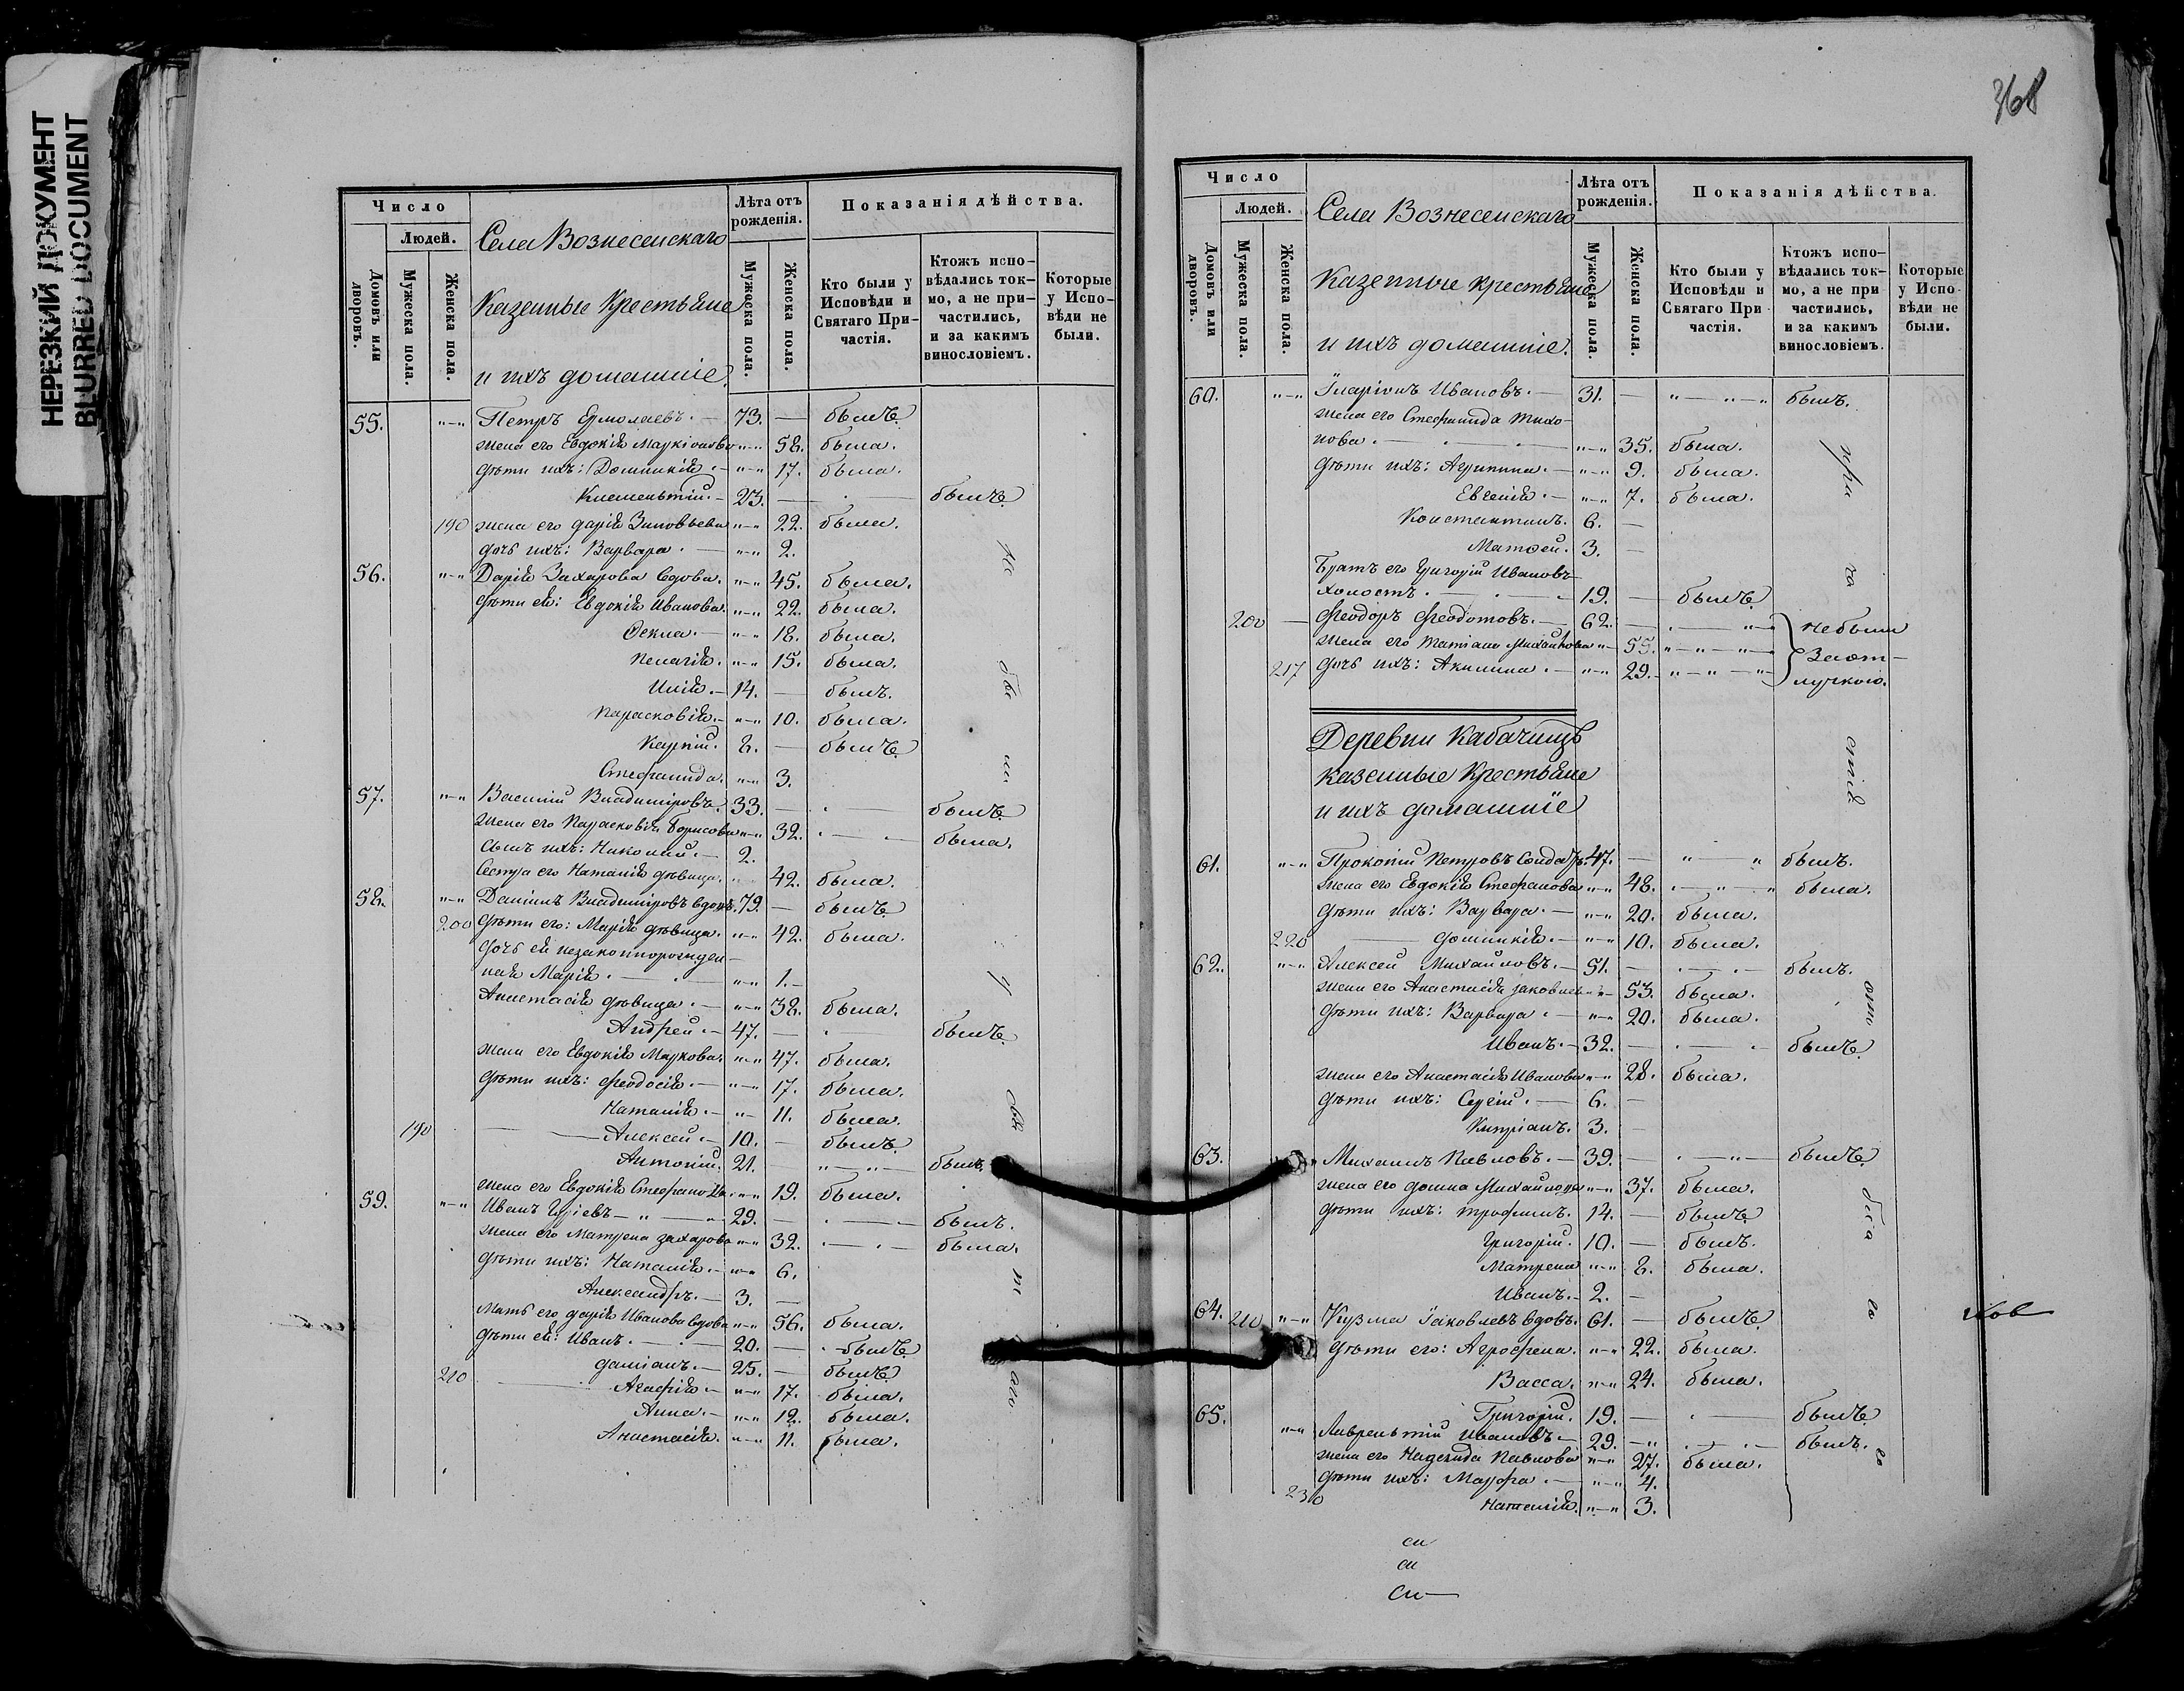 НЕРЕЗКИЙ ДОКУМЕНТ
BLURRED DOCUMENT
Число
Людей.
Домовъ или дворовъ.
Мужеска пола.
Женска пола.
Села Вознесенскаго
Казенные Крестьяне
и ихъ домашніе.
Лѣта отъ рожденія.
Мужеска пола.
Женска пола.
Показанія дѣйства.
Кто были у Исповѣди и Святаго Причастія.
Ктожъ исповѣдались токмо, а не причастились, и за какимъ винословіемъ.
Которые у Исповѣди не были.
55. "–" Петръ Ермолаевъ. 73. — былъ.
жена его Евдокія "–" 58. была.
дѣти ихъ: Домникія. "–" 17. была.
Климентій. 23. — былъ.
190 жена его дарія Зиновьева "–" 22. была.
дочь ихъ: Варвара. "–" 2.
56. "–" Дарія Захарова вдова. "–" 45. была.
дѣти ея: Евдокія Иванова. "–" 22. была.
Ѳекла. "–" 18. была.
Пелагія. "–" 15. была.
Илія. 14. — былъ.
Парасковія. "–" 10. была.
Карпій. 8. — былъ.
Стефанида. "–" 3.
57. "–" Василій Владиміровъ. 33. — былъ.
жена его Парасковія Борисова "–" 32. была.
сынъ ихъ: Николай. 2.
Сестра его Наталія дѣвица. 42. была.
58. "–" Даніилъ Владиміровъ вдовъ. 79. — былъ.
200 дѣти его: Марія дѣвица. "–" 42. была.
дочь ея незаконнорожден–
ная Марія. "–" 1.
Анастасія дѣвица. "–" 38. была.
Андрей. 47. — былъ.
жена его Евдокія Маркова. "–" 47. была.
дѣти ихъ: Феодосія. "–" 17. была.
Наталія. "–" 11. была.
190 Алексей. 10. — былъ.
Антоній. 21. — былъ.
жена его Евдокія Стефанова. "–" 19. была.
59. "–" Иванъ Гуріевъ 29. — былъ.
жена его Матрена захарова "–" 32. была.
дѣти ихъ: Наталія. "–" 6.
Александръ. 3. —
Мать его дарія Иванова вдова "–" 56. была.
дѣти ея: Иванъ. 20. — былъ.
даміанъ. 25. — былъ.
210 Агафія. "–" 17. была.
Анна. "–" 12. была.
Анастасія. "–" 11. была.
368
Число
Людей.
Домовъ или дворовъ.
Мужеска пола.
Женска пола.
Села Вознесенскаго
Казенные крестьяне
и ихъ домашніе.
Лѣта отъ рожденія.
Мужеска пола.
Женска пола.
Показанія дѣйства.
Кто были у Исповѣди и Святаго Причастія.
Ктожъ исповѣдались токмо, а не причастились, и за какимъ винословіемъ.
Которые у Исповѣди не были.
60. "–" Иларіонъ Ивановъ. 31. — былъ.
жена его Стефанида Тихо–
нова. "–" 35. была.
дѣти ихъ: Агрипина. "–" 9. была.
Евгенія. "–" 7. была.
Константинъ. 6. —
Матѳей. 3. —
Братъ его Григорій Ивановъ
холостъ. 19. — былъ.
200 — Феодоръ Феодотовъ. 62. — Небыли
жена его Татіана Михайлова "–" 55. Заот–
217 дочь ихъ: Акилина. "–" 29. лучкою.
Деревни Кабачищъ
казенные Крестьяне
и ихъ домашніе
61. "–" Прокопій Петровъ 47. — былъ.
жена его Евдокія Стефанова "–" 48. была.
дѣти ихъ: Варвара. "–" 20. была.
220 домникія. "–" 10. была.
62. "–" Алексей Михайловъ. 51. — былъ.
жена его Анастасія "–" 53. была.
дѣти ихъ: Варвара. "–" 20. была.
Иванъ. 32. — былъ.
жена его Анастасія Иванова "–" 28. была.
дѣти ихъ: Сергій. 6. —
Кипріанъ. 3. —
63. Михаилъ Павловъ. 39. — былъ.
жена его домна Михайлова "–" 37. была.
дѣти ихъ: трофимъ. 14. — былъ.
Григорій. 10. — былъ.
Матрена "–" 8. была.
Иванъ. 2. —
64. 210 "–" Кузма Іаковлевъ вдовъ. 61. — былъ.
дѣти его: Агрофена. "–" 22. была.
Васса. "–" 24. была.
Григорій. 19. — былъ.
65. "–" Лаврентій Ивановъ 29. — былъ.
жена его Надежда Павлова "–" 27. была.
дѣти ихъ: Марфа. "–" 4.
230 Наталія. "–" 3.